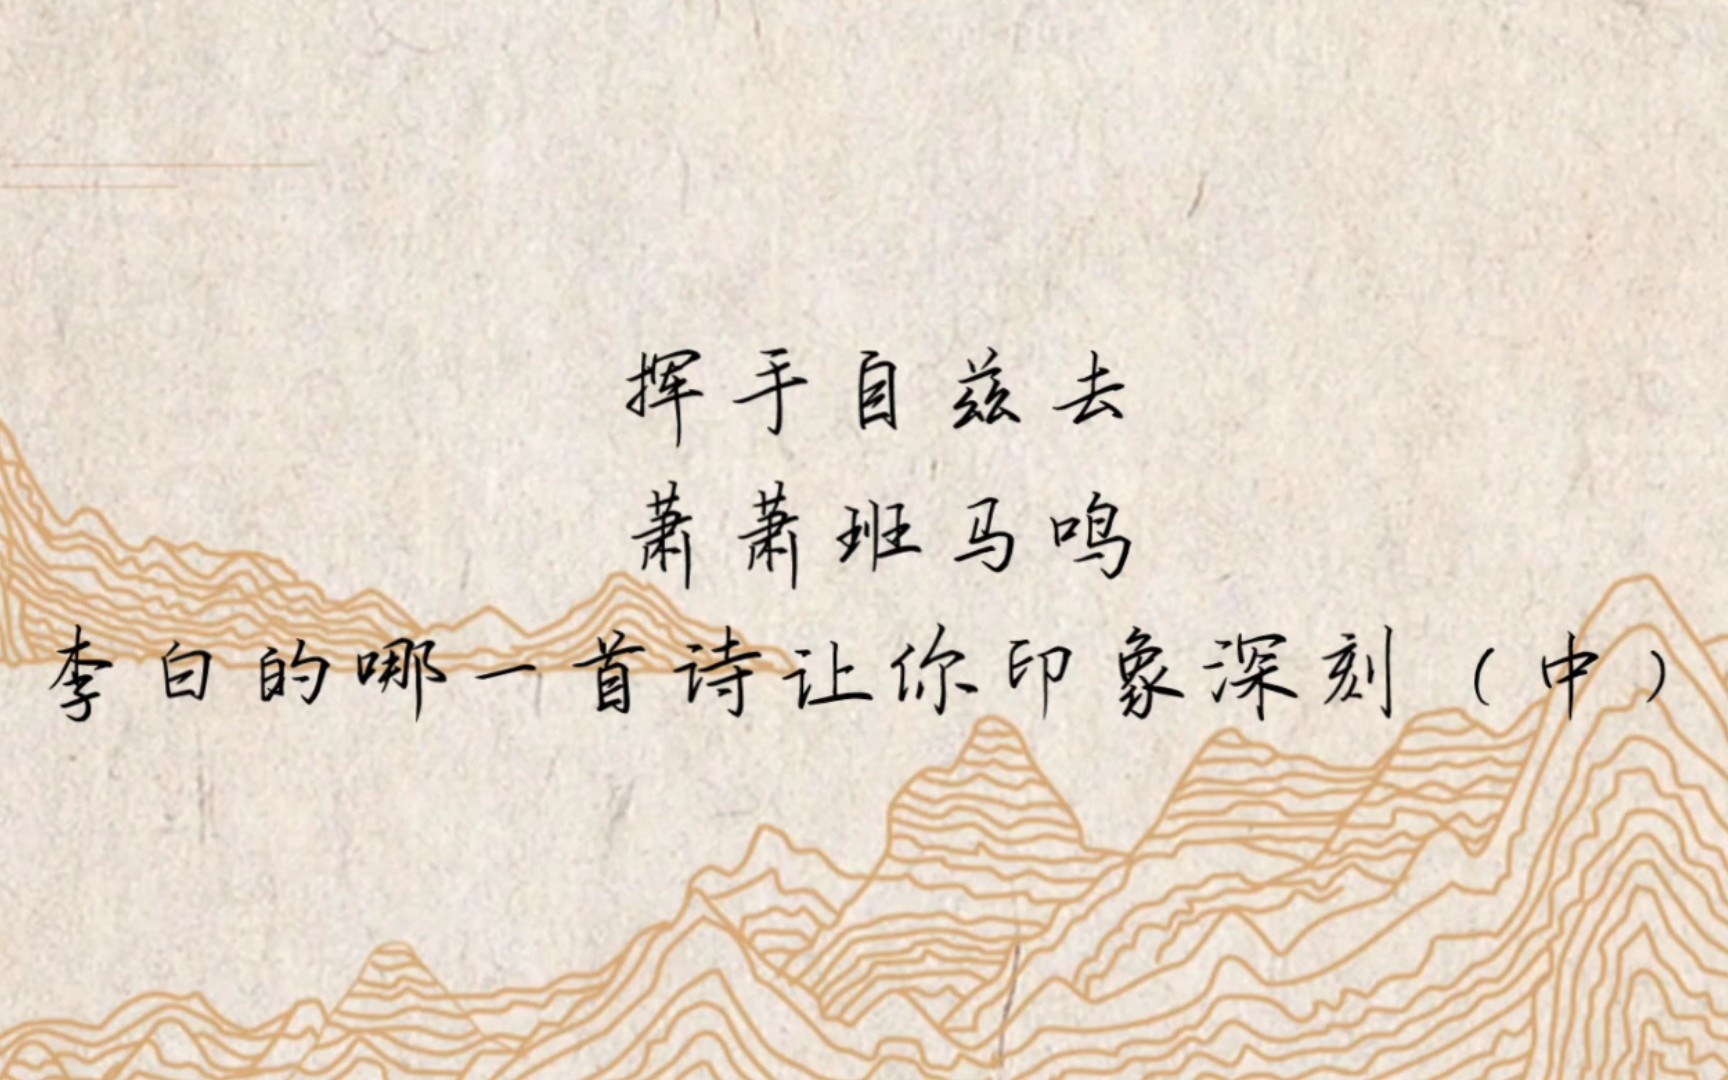 挥手自兹去
萧萧班马鸣
李白的哪一首诗让你印象深刻（中）